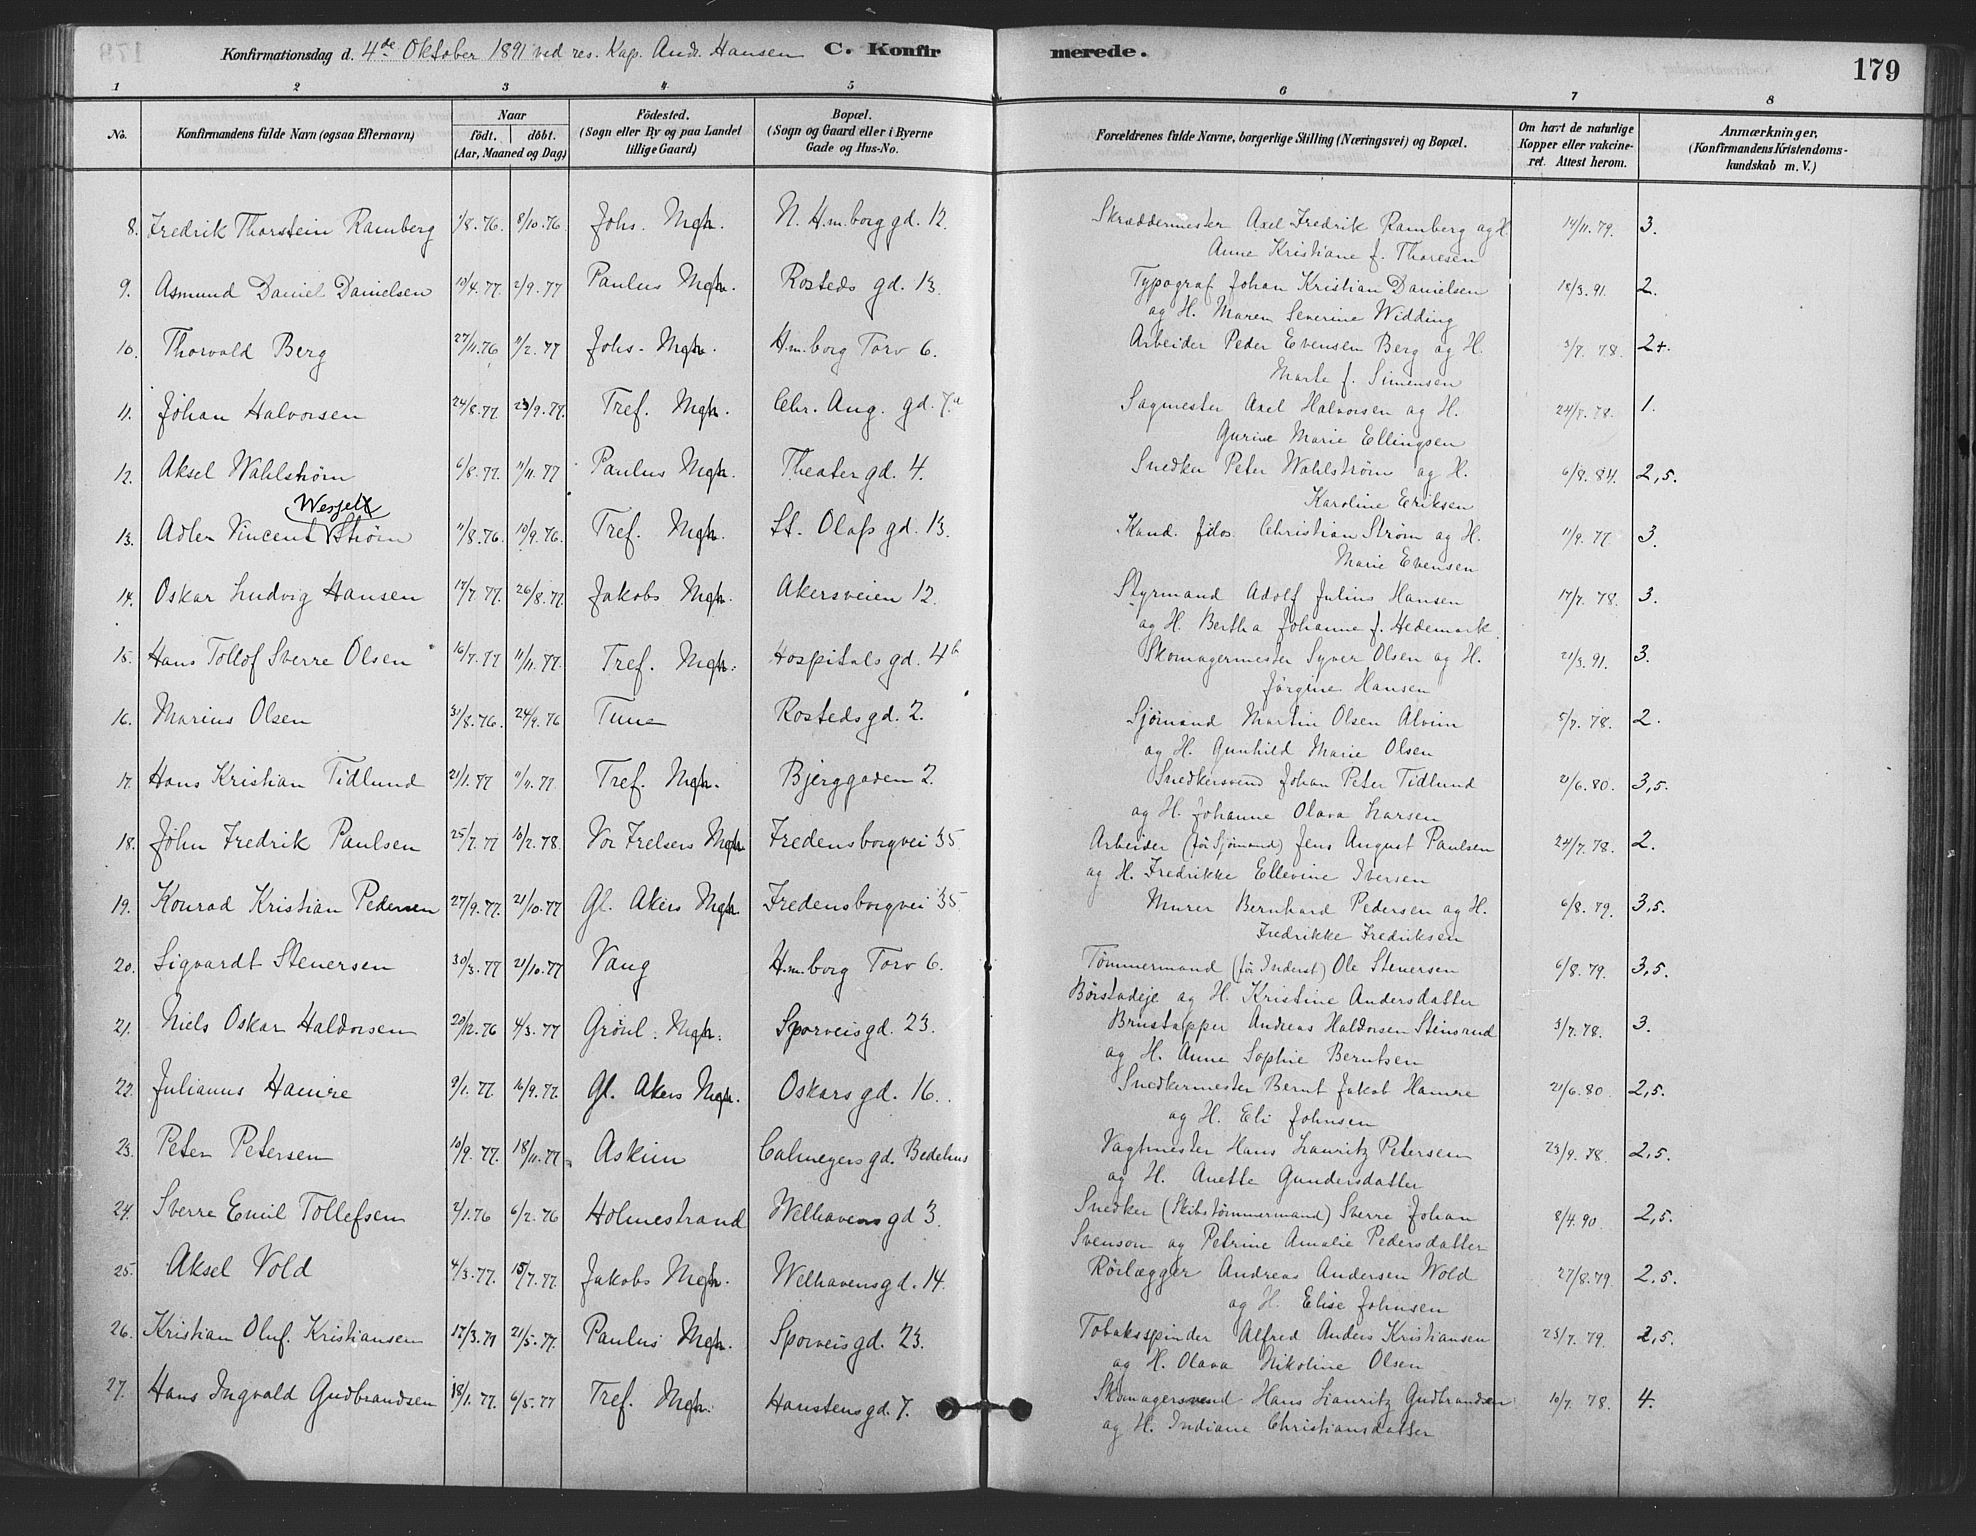 Konfirmationsdag d. 4de Oktober 1891 ved res. Kap. Andr. Hansen C. Konfirmerede. 179
1 2 3 4 5 6 7 8
No. Konfirmandens fulde Navn (ogsaa Efternavn) Naar födt. döbt. (Aar, Maaned og Dag) Födested. (Sogn eller By og paa Landet tillige Gaard) Bopæl. (Sogn og Gaard eller i Byerne Gade og Hus-No. Forældrenes fulde Navne, borgerlige Stilling (Næringsvei) og Bopæl. Om havt de naturlige Kopper eller vakcineret. Attest herom. Anmærkninger. (Konfirmandens Kristendomskundskab m. V.)
8. Fredrik Thorstein Ramberg 1/8.76. 8/10.76 Johs. Mgh. N. H.m.borg gd. 12. Skræddermester Axel Fredrik Ramberg og H. 14/11.79. 3.
Anne Kristiane f. Thoresen
9. Asmund Daniel Danielsen 19/4.77 2/9.77 Paulus Mgh. Rosteds gd. 13. Typograf Johan Kristian Danielsen 18/3.91. 2.
og H. Maren Severine Widding
10. Thorvald Berg 27/11.76 11/2.77 Johs. Mgh. H.m.borg Torv 6. Arbeider Peder Evensen Berg og H. 3/7.78. 2+.
Marte f. Simensen
11. Johan Halvorsen 24/8.77 23/9.77. Tref. Mgh. Chr. Aug. gd. 7.a Sagmester Axel Halvorsen og H. 24/8.78. 1.
Gurine Marie Ellingsen
12. Aksel Wahlstrøm 6/8.77. 11/11.77 Paulus Mgh. Theatergd. 4. Snedker Peter Wahlstrøm og H. 6/8.84. 2,5.
Karoline Eriksen
Wessel
13. Adler Vincent Strøm 11/8.76. 10/9.76. Tref. Mgh. St. Olafs gd. 13. Kand. filos. Christian Strøm og H. 11/9.77 3.
Marie Evensen
14. Oskar Ludvig Hansen 17/7.77. 26/8.77 Jakobs Mgh. Akersveien 12. Styrmand Adolf Julius Hansen 17/7.78. 3.
og H. Bertha Johanne f. Hedemark
15. Hans Tollof Sverre Olsen 16/7.77 11/11.77. Tref. Mgh. Hospitalsgd. 4b Skomagermester Syver Olsen og H. 21/3.91. 3.
Jørgine Hansen
16. Marius Olsen 31/8.76. 24/9.76 Tune Rostedsgd. 2. Sjømand Martin Olsen Alvim 5/7.78. 2.
og H. Gunhild Marie Olsen
17. Hans Kristian Tidlund 21/1.77 Tref. Mgh. Bjerggaden 2. Snedkersvend Johan Peter Tidlund 21/6.80. 3,5.
og H. Johanne Olava Larsen
18. John Fredrik Paulsen 25/7.77 10/2.78. Vor Frelsers Mgh Fredensborgvei 35 Arbeider (før Sjømand) Jens August Paulsen 24/7.78. 2.
og H. Fredrikke Ellevine Iversen
19. Konrad Kristian Pedersen 27/9.77. 21/10.77 Gl. Akers Mgh. Fredensborgvei 35 Murer Bernhard Pedersen og H. 6/8.79. 3,5.
Fredrikke Fredriksen
20. Sigvardt Stenersen 30/3.77 21/10.77 Vang H.m.borg Torv 6. Tømmermand (før Inderst) Ole Stenersen 6/8.79. 3,5.
Børstadeje og H. Kristine Andersdatter
21. Niels Oskar Haldorsen 20/12.76 4/3.77 Grønl. Mgh. Sporveisgd. 23. Brustapper Andreas Haldorsen Stensrud 3/7.78. 3.
og H. Anne Sophie Berntsen
22. Julianus Hamre 9/1.77 16/9.77. Gl. Akers Mgh. Oskarsgd. 16. Snedkermester Bernt Jakob Hamre 21/6.80 2,5.
og H. Eli Johnsen
23. Peter Petersen 10/9.77. 18/11.77 Askim Calmeyersgd. Bedehus Vagtmester Hans Lauritz Petersen 23/9.78. 2,5.
og H. Anette Gundersdatter
24. Sverre Emil Tollefsen 2/1.76 6/2.76 Holmestrand Welhavensgd 3. Snedker (Skibstømmermand) Sverre Johan 8/4.90. 2,5.
Svenson og Petrine Amalie Pedersdatter
25. Aksel Vold 4/3.77. 15/7.77. Jakobs Mgh. Welhavensgd. 14. Rørlægger Andreas Andersen Wold 27/8.79. 2,5.
og H. Elise Johnsen
26. Kristian Oluf. Kristiansen 17/3.77 21/5.77. Paulus Mgh. Sporveisgd. 23. Tobaksspinder Alfred Anders Kristiansen 23/7.79. 2,5.
og H. Olava Nikoline Olsen
27. Hans Ingvald Gudbrandsen 18/1.77. 6/5.77 Tref. Mgh. Hanstensgd. 7. Skomagersvend Hans Lauritz Gudbrandsen 10/7.78. 4.
og H. Indiane Christiansdatter